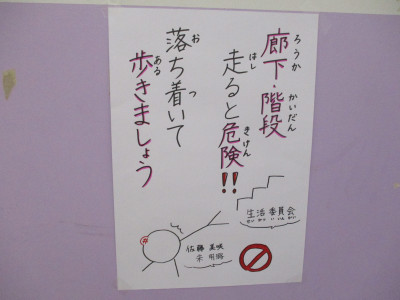 廊下・階段
ろうか かいだん
走ると危険!!
はし きけん
落ち着いて
お つ
歩きましょう
ある
生活委員会
せい かつ い いん かい
佐藤 美咲